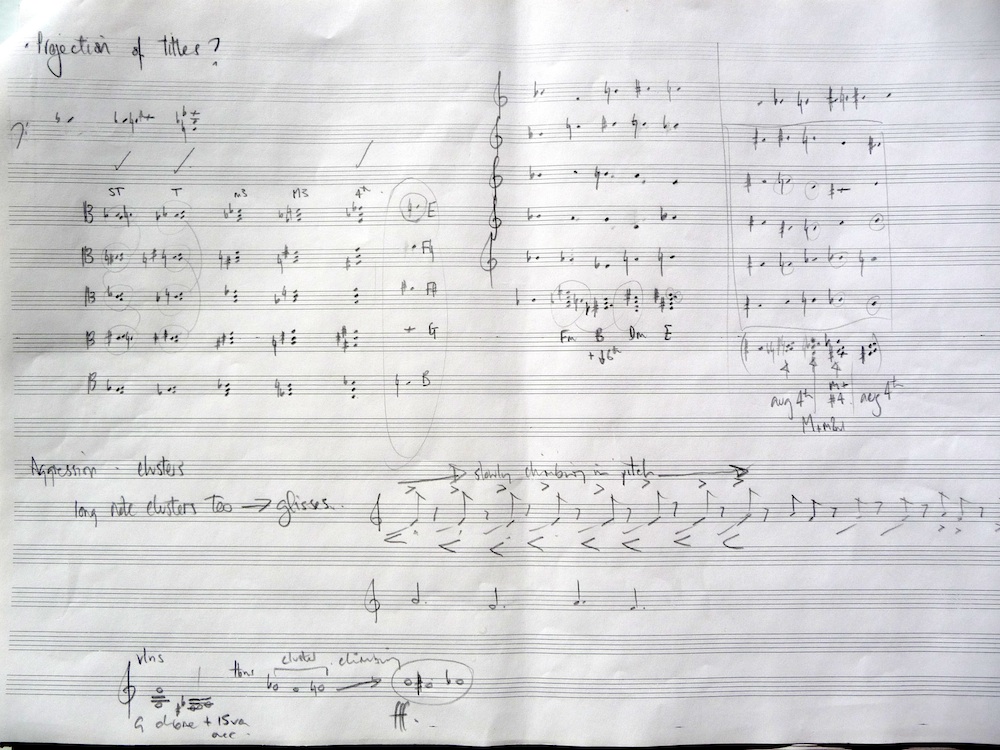 · Projection of titles?
ST T m3 M3 4th
E
F♮
F#
G
B
Fm B Dm E
+ b6th
aug 4th m+ #4 aug 4th
M+m2nd
Aggression - clusters
slowly climbing in pitch
long note clusters too → glisses.
vlns
tbns cluster climbing
G drone + 15va
fff.